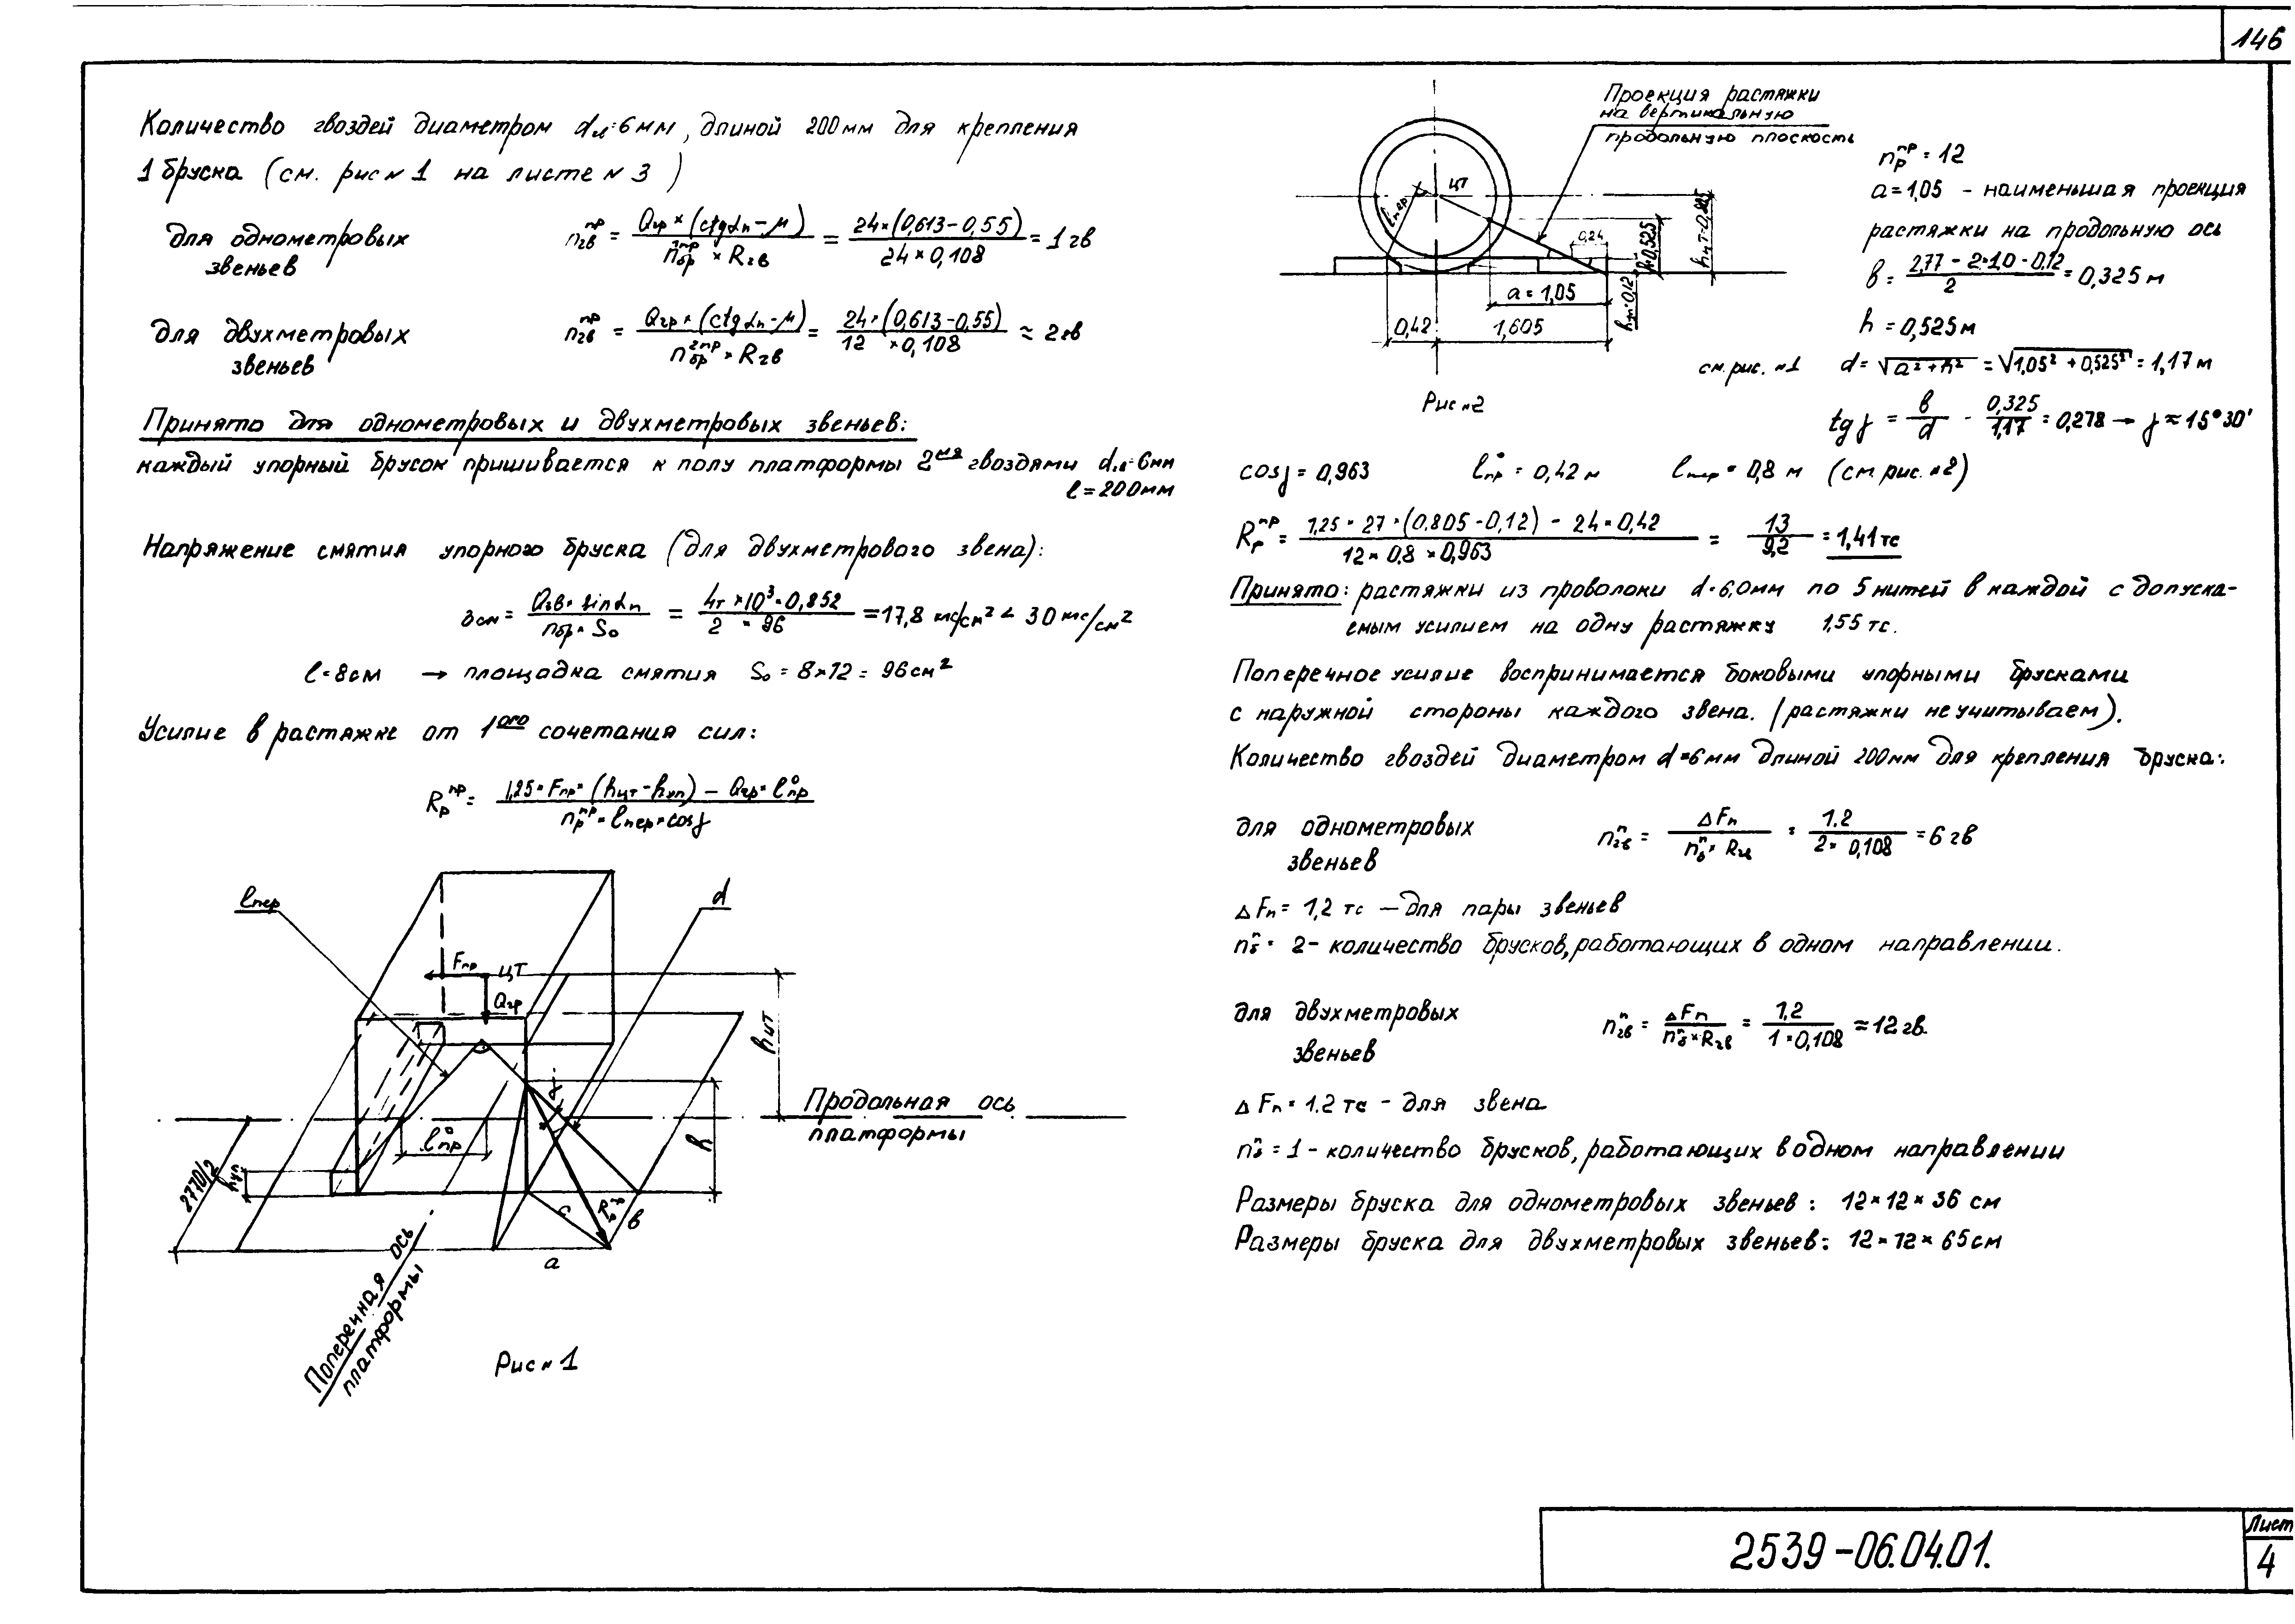 146
Количество гвоздей диаметром d гв=6мм, длиной 200мм для крепления
1 бруска (см. рис №1 на листе №3)
для однометровых звеньев nгв^пр = Qгр × (ctgαп − μ) / nбр^1пр × Rгв = 24×(0,613−0,55) / 24×0,108 = 1гв
для двухметровых звеньев nгв^пр = Qгр × (ctgαп − μ) / nбр^2пр × Rгв = 24×(0,613−0,55) / 12×0,108 ≈ 2гв
Принято для однометровых и двухметровых звеньев:
каждый упорный брусок пришивается к полу платформы 2мя гвоздями dгв=6мм
l=200мм
Напряжение смятия упорного бруска (для двухметрового звена):
= Qзв × sinαп / nбр × S₀ = 4т×10³×0,852 / 2 × 96 = 17,8 кгс/см² < 30 кгс/см²
l=8см → площадка смятия S₀ = 8×12 = 96см²
Усилие в растяжке от 1ого сочетания сил:
Rр^пр = 1,25 × Fпр × (hцт − hуп) − Qгр × l⁰пр / nр^пр × lпер × cosγ
lпер
d
Fпр
ЦТ
Qгр
hцт
h
γ
Продольная ось
платформы
l⁰пр
hуп
2770/2
c
Rр^пр
в
a
Поперечная ось
платформы
Рис №1
Проекция растяжки
на вертикальную
продольную плоскость
ЦТ
lпер
0,24
h=0,525
hцт=0,805
a = 1,05
hуп=0,12
0,42
1,605
Рис №2
nр^пр = 12
a=1,05 - наименьшая проекция
растяжки на продольную ось
в = 2,77 − 2×1,0 − 0,12 / 2 = 0,325 м
h = 0,525м
см. рис. №1 d = √a²+h² = √1,05² + 0,525² = 1,17м
tgγ = в / d = 0,325 / 1,17 = 0,278 → γ ≈ 15°30'
cosγ = 0,963 l⁰пр = 0,42 м lпер = 0,8 м (см. рис. №2)
Rр^пр = 1,25 × 27 × (0,805 − 0,12) − 24×0,42 / 12 × 0,8 × 0,963 = 13 / 9,2 = 1,41тс
Принято: растяжки из проволоки d=6,0мм по 5 нитей в каждой с допуска-
емым усилием на одну растяжку 1,55 тс.
Поперечное усилие воспринимается боковыми упорными брусками
с наружной стороны каждого звена. (растяжки не учитываем).
Количество гвоздей диаметром d=6мм длиной 200мм для крепления бруска:
для однометровых звеньев nгв^п = ΔFп / nб^п × Rгв = 1.2 / 2 × 0,108 = 6 гв
ΔFп = 1,2 тс — для пары звеньев
nб^п = 2 - количество брусков, работающих в одном направлении.
для двухметровых звеньев nгв^п = ΔFп / nб^п × Rгв = 1,2 / 1 × 0,108 ≈ 12 гв.
ΔFп = 1.2 тс - для звена
nб^п = 1 - количество брусков, работающих в одном направлении
Размеры бруска для однометровых звеньев: 12×12×36 см
Размеры бруска для двухметровых звеньев: 12×12×65см
2539-06.04.01.
Лист
4